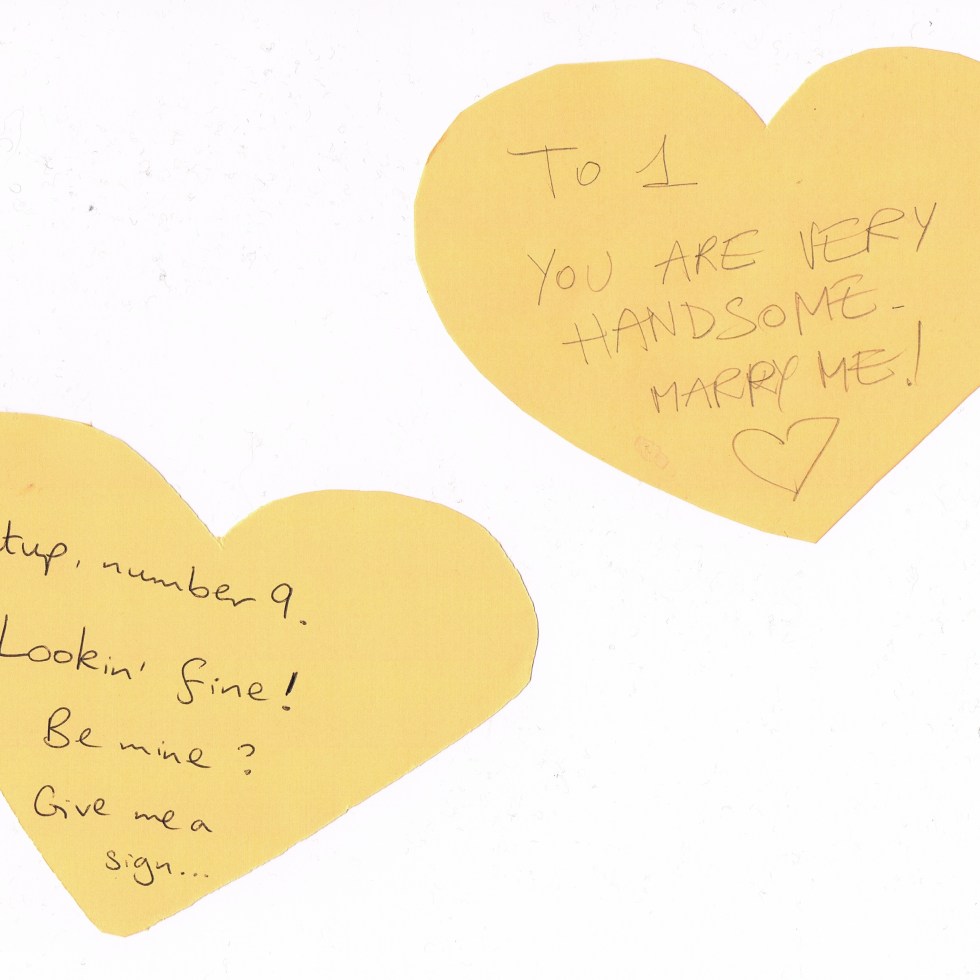 To 1
YOU ARE VERY
HANDSOME-
MARRY ME!
number 9.
Lookin' fine!
Be mine?
Give me a
sign...